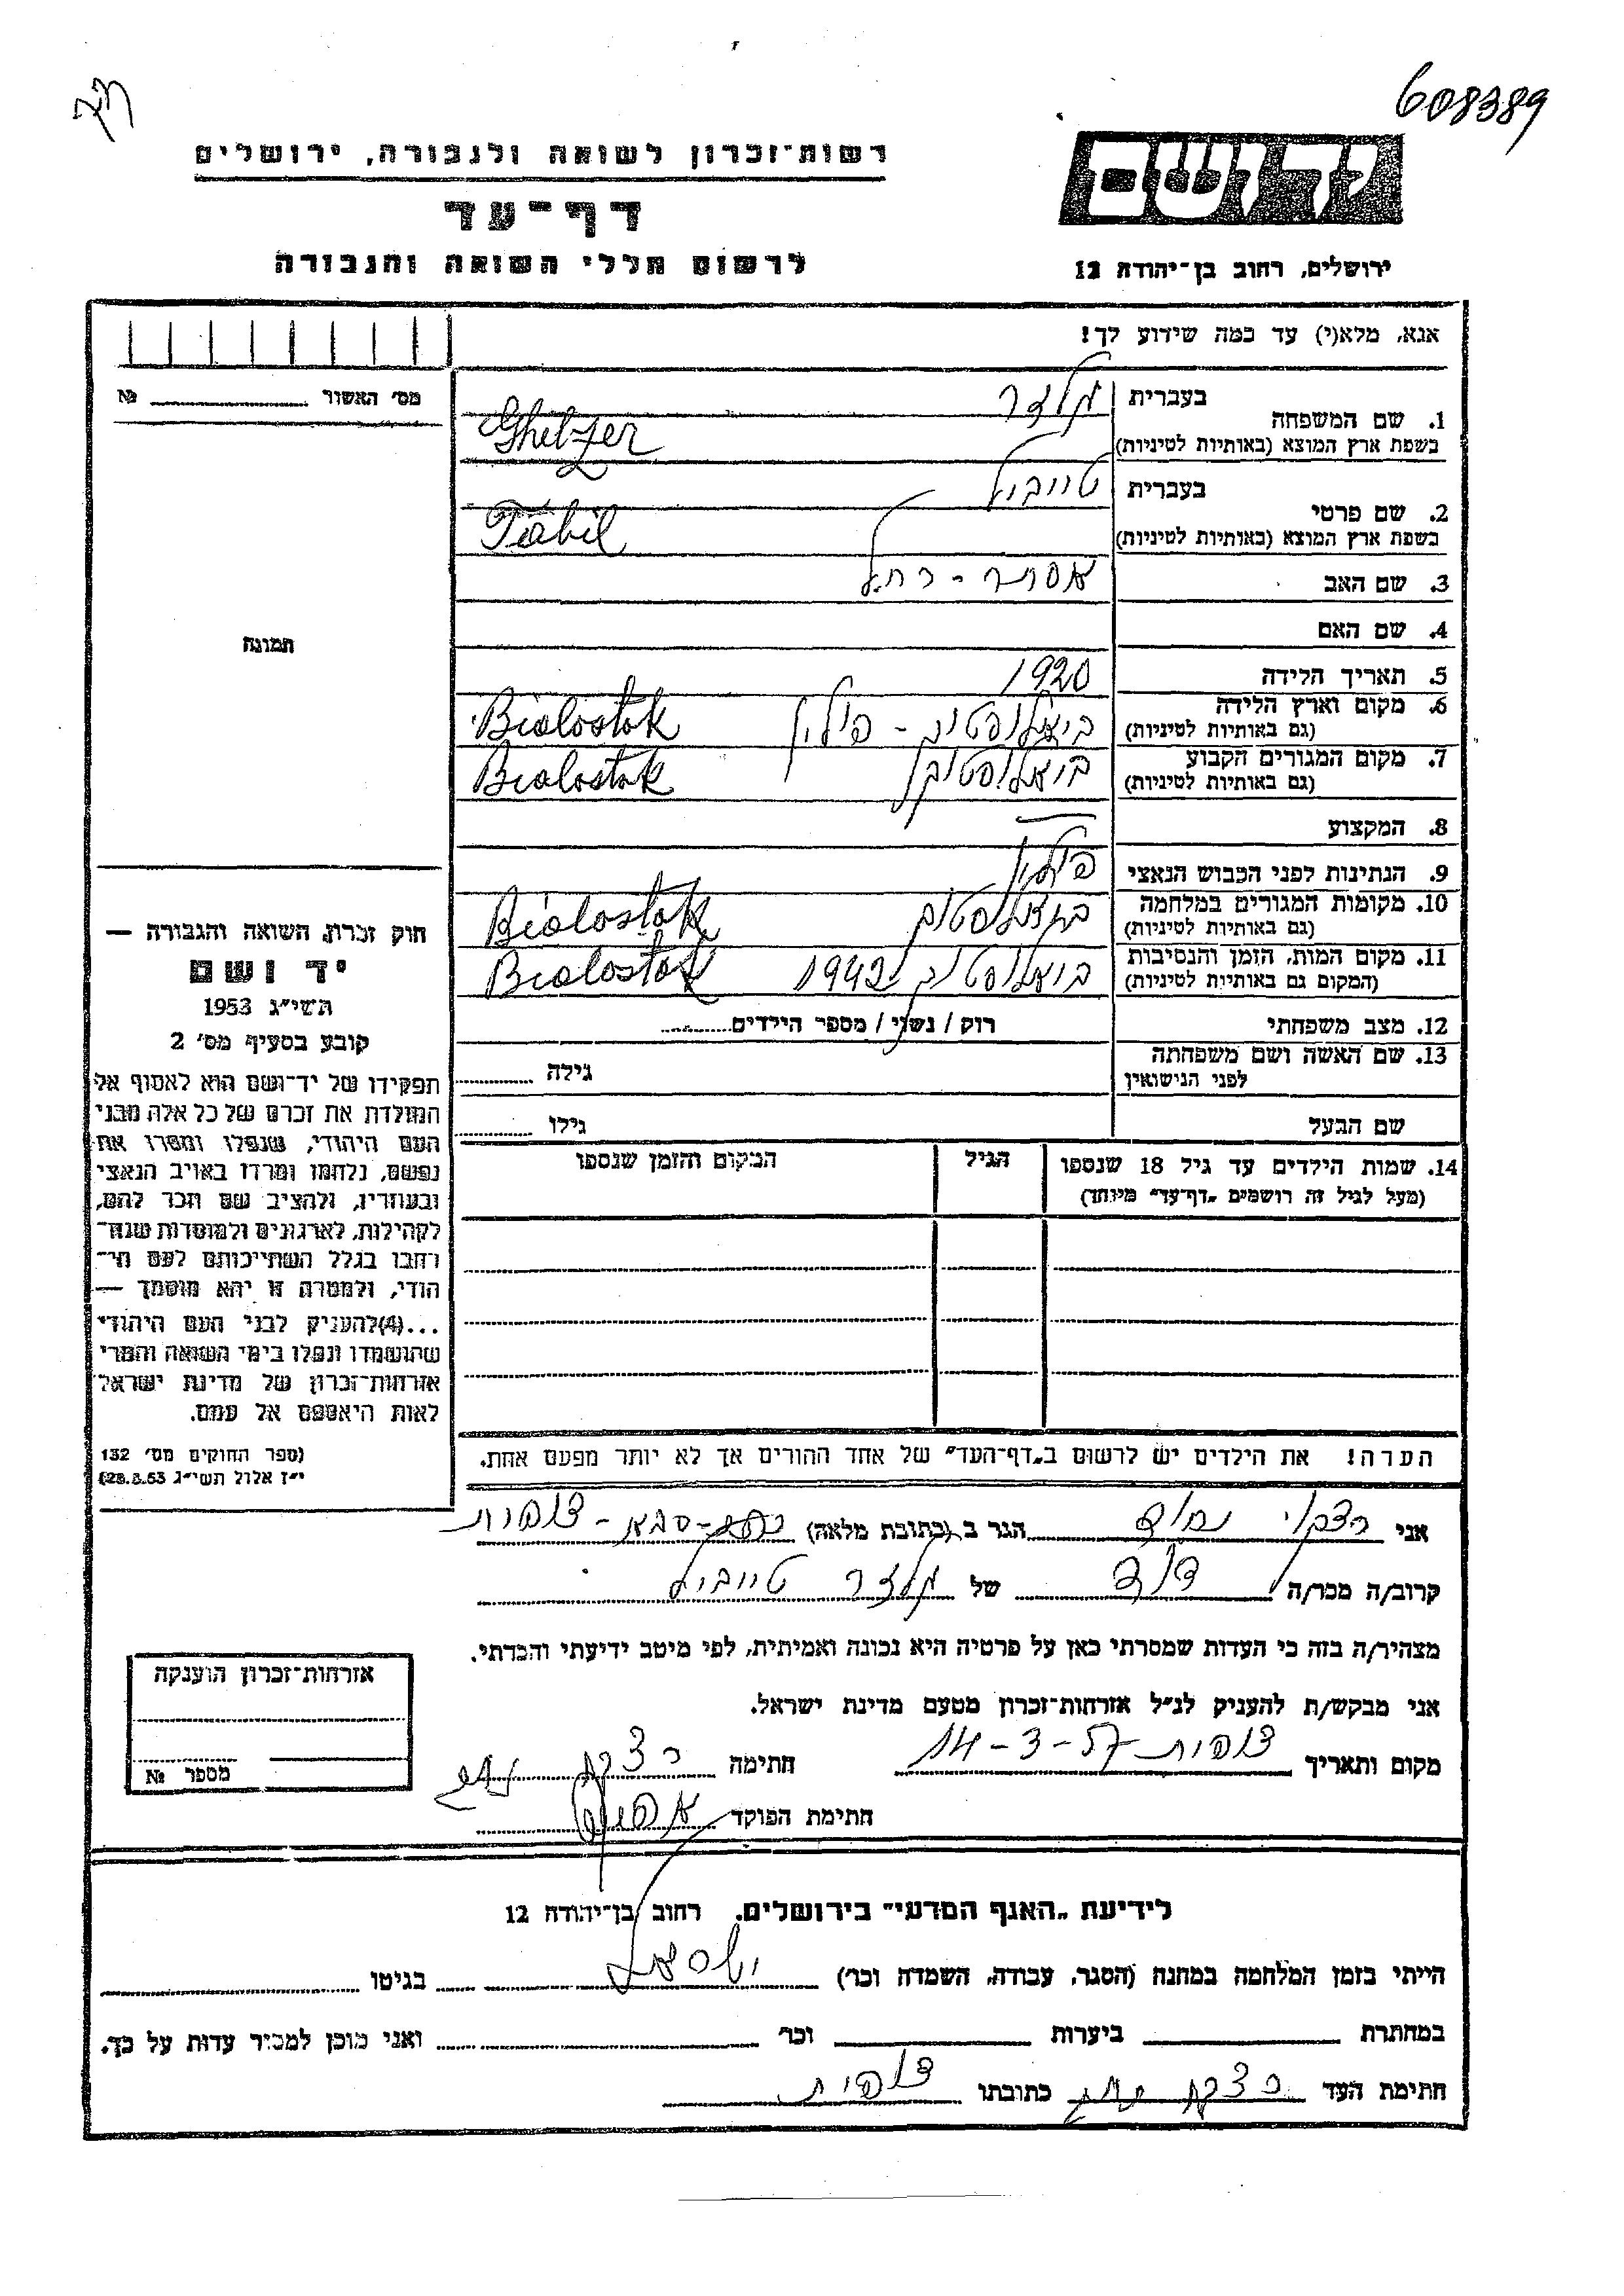 608389
רשות־זכרון לשואה ולגבורה, ירושלים
דף־עד
לרשום חללי השואה והגבורה
יד ושם
ירושלים, רחוב בן־יהודה 12
אנא, מלא(י) עד כמה שידוע לך!
מס׳ האשור № 
1. שם המשפחה
בעברית מלצר
בשפת ארץ המוצא (באותיות לטיניות) Ghelzer
2. שם פרטי
בעברית טייביל
בשפת ארץ המוצא (באותיות לטיניות) Tabil
3. שם האב אסתר - רחל
4. שם האם
5. תאריך הלידה 1920
6. מקום וארץ הלידה ביאלוסטוק - פולין Bialostok
(גם באותיות לטיניות)
7. מקום המגורים הקבוע ביאלוסטוק Bialostok
(גם באותיות לטיניות)
8. המקצוע —
9. הנתינות לפני הכבוש הנאצי פולין
10. מקומות המגורים במלחמה ביאלוסטוק Bialostok
(גם באותיות לטיניות)
11. מקום המות, הזמן והנסיבות ביאלוסטוק 1942 Bialostok
(המקום גם באותיות לטיניות)
12. מצב משפחתי רוק / נשוי / מספר הילדים
13. שם האשה ושם משפחתה גילה
לפני הנישואין
שם הבעל גילו
14. שמות הילדים עד גיל 18 שנספו הגיל המקום והזמן שנספו
(מעל לגיל זה רושמים „דף־עד״ מיוחד)
הערה! את הילדים יש לרשום ב„דף־העד״ של אחד ההורים אך לא יותר מפעם אחת.
תמונה
חוק זכרון השואה והגבורה —
יד ושם
תשי״ג 1953
קובע בסעיף מס׳ 2
תפקידו של יד־ושם הוא לאסוף אל
המולדת את זכרם של כל אלה מבני
העם היהודי, שנפלו ומסרו את
נפשם, נלחמו ומרדו באויב הנאצי
ובעוזריו, ולהציב שם וזכר להם,
לקהילות, לארגונים ולמוסדות שנח־
רבו בגלל השתייכותם לעם הי־
הודי, ולמטרה זו יהא מוסמך —
...(4)להעניק לבני העם היהודי
שהושמדו ונפלו בימי השואה והמרי
אזרחות־זכרון של מדינת ישראל
לאות היאספם אל עמם.
(ספר החוקים מס׳ 132
י״ז אלול תשי״ג 28.8.53)
אני הגר ב (כתובת מלאה) כפר-סבא - צופית
קרוב/ה מכר/ה דוד של מלצר טייביל
מצהיר/ה בזה כי העדות שמסרתי כאן על פרטיה היא נכונה ואמיתית, לפי מיטב ידיעתי והכרתי.
אני מבקש/ת להעניק לנ״ל אזרחות־זכרון מטעם מדינת ישראל.
מקום ותאריך צופית 14-3-57 חתימה
חתימת הפוקד
אזרחות־זכרון הוענקה
מספר №
לידיעת „האגף המדעי״ בירושלים, רחוב בן־יהודה 12
הייתי בזמן המלחמה במחנה (הסגר, עבודה, השמדה וכו׳) ישראל בגיטו
במחתרת ביערות וכו׳ ואני מוכן למסיר עדות על כך.
חתימת העד כתובתו צופית